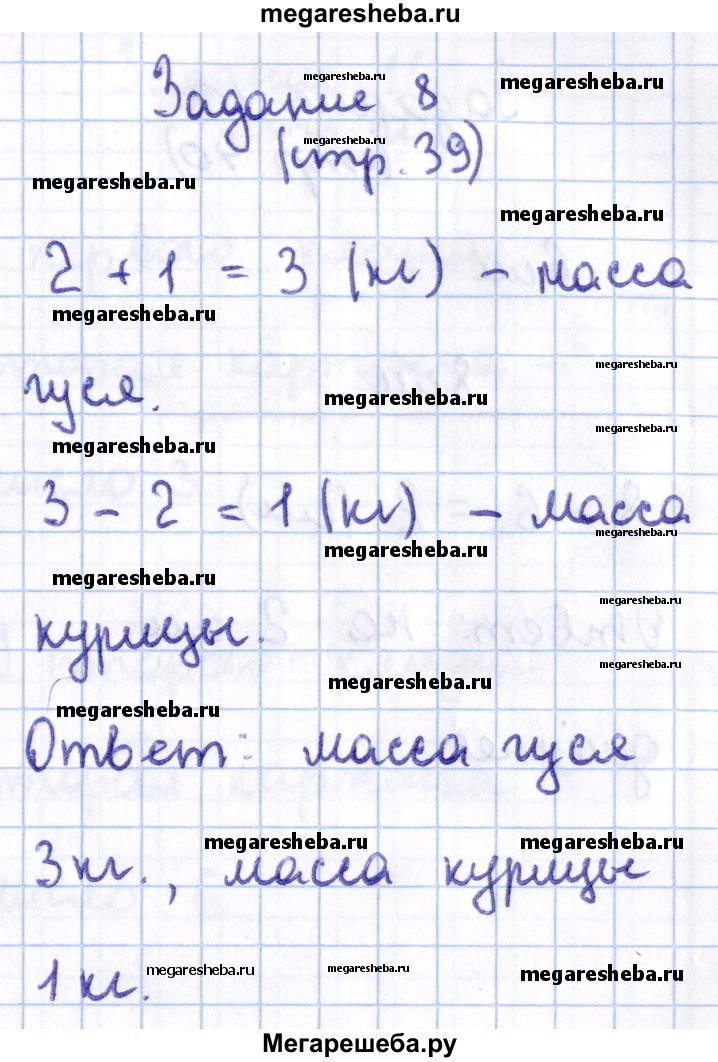 megaresheba.ru
Задание 8
megaresheba.ru
megaresheba.ru
(стр. 39)
megaresheba.ru
megaresheba.ru
megaresheba.ru
2 + 1 = 3 (кг) - масса
megaresheba.ru
megaresheba.ru
гуся.
megaresheba.ru
megaresheba.ru
megaresheba.ru
3 - 2 = 1 (кг) - масса
megaresheba.ru
megaresheba.ru
megaresheba.ru
megaresheba.ru
курицы.
megaresheba.ru
megaresheba.ru
megaresheba.ru
Ответ: масса гуся
megaresheba.ru
megaresheba.ru
3 кг., масса курицы
1 кг.
megaresheba.ru
megaresheba.ru
megaresheba.ru
Мегарешеба.ру